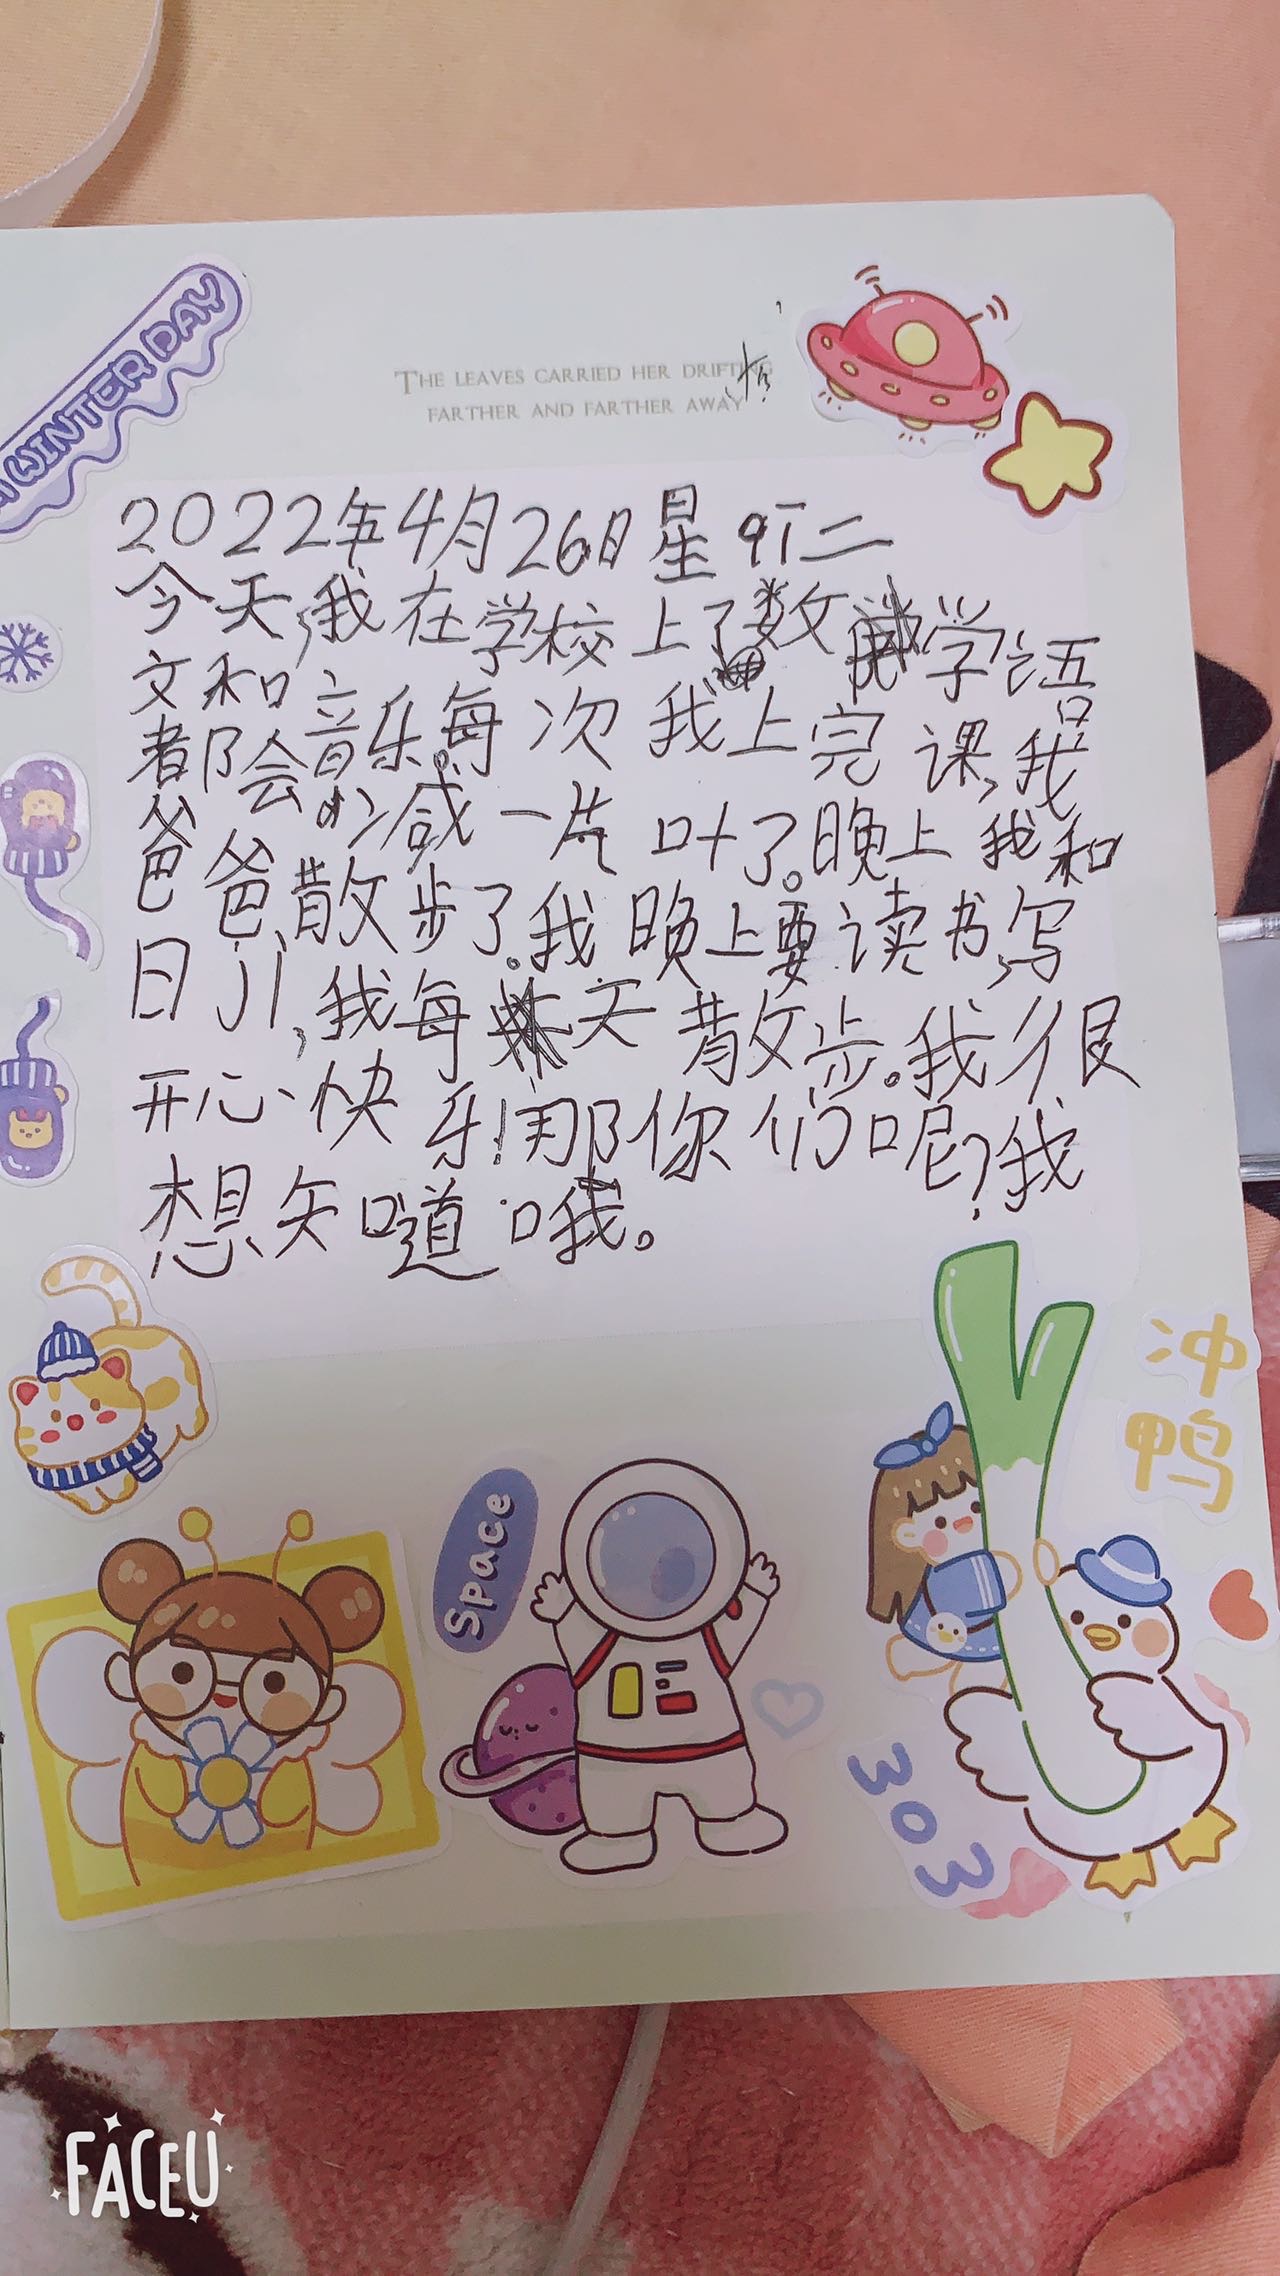 WINTER DAY
THE LEAVES CARRIED HER DRIFTING
FARTHER AND FARTHER AWAY
2022年4月26日星qī二
今天,我在学校上了数学语
文和音乐。每次我上完课,我
都会少减一片叶了。晚上我和
爸爸散步了。我晚上要读书,写
日记,我每天散步。我很
开心快乐!那你们呢?我
想知道哦。
冲
鸭
Space
303
FACEU